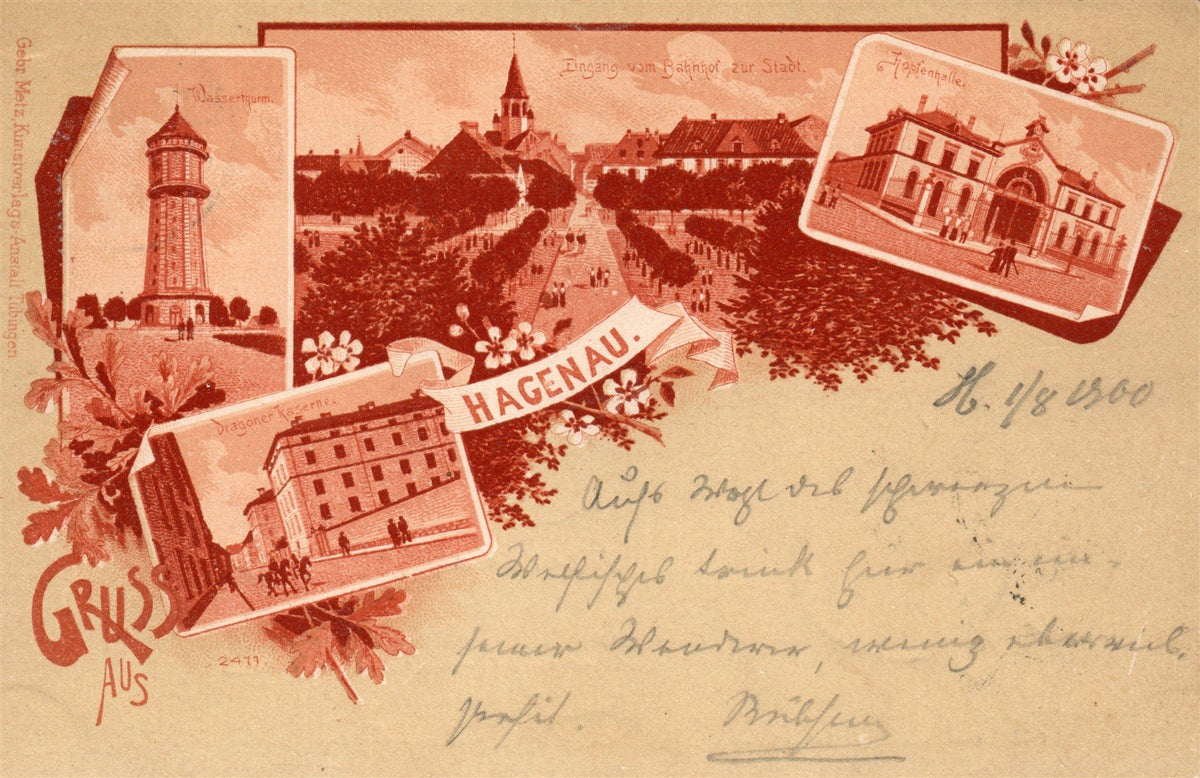 Gebr Metz Kunstverlags-Anstalt Tübingen
Wasserthurm.
Eingang vom Bahnhof zur Stadt.
Hopfenhalle.
HAGENAU.
Dragoner Kaserne.
GRUSS
AUS
2411
H. 1/8 1900
Aufs Wohl des
trink hier ein ein-
samer Wanderer, wenig aber